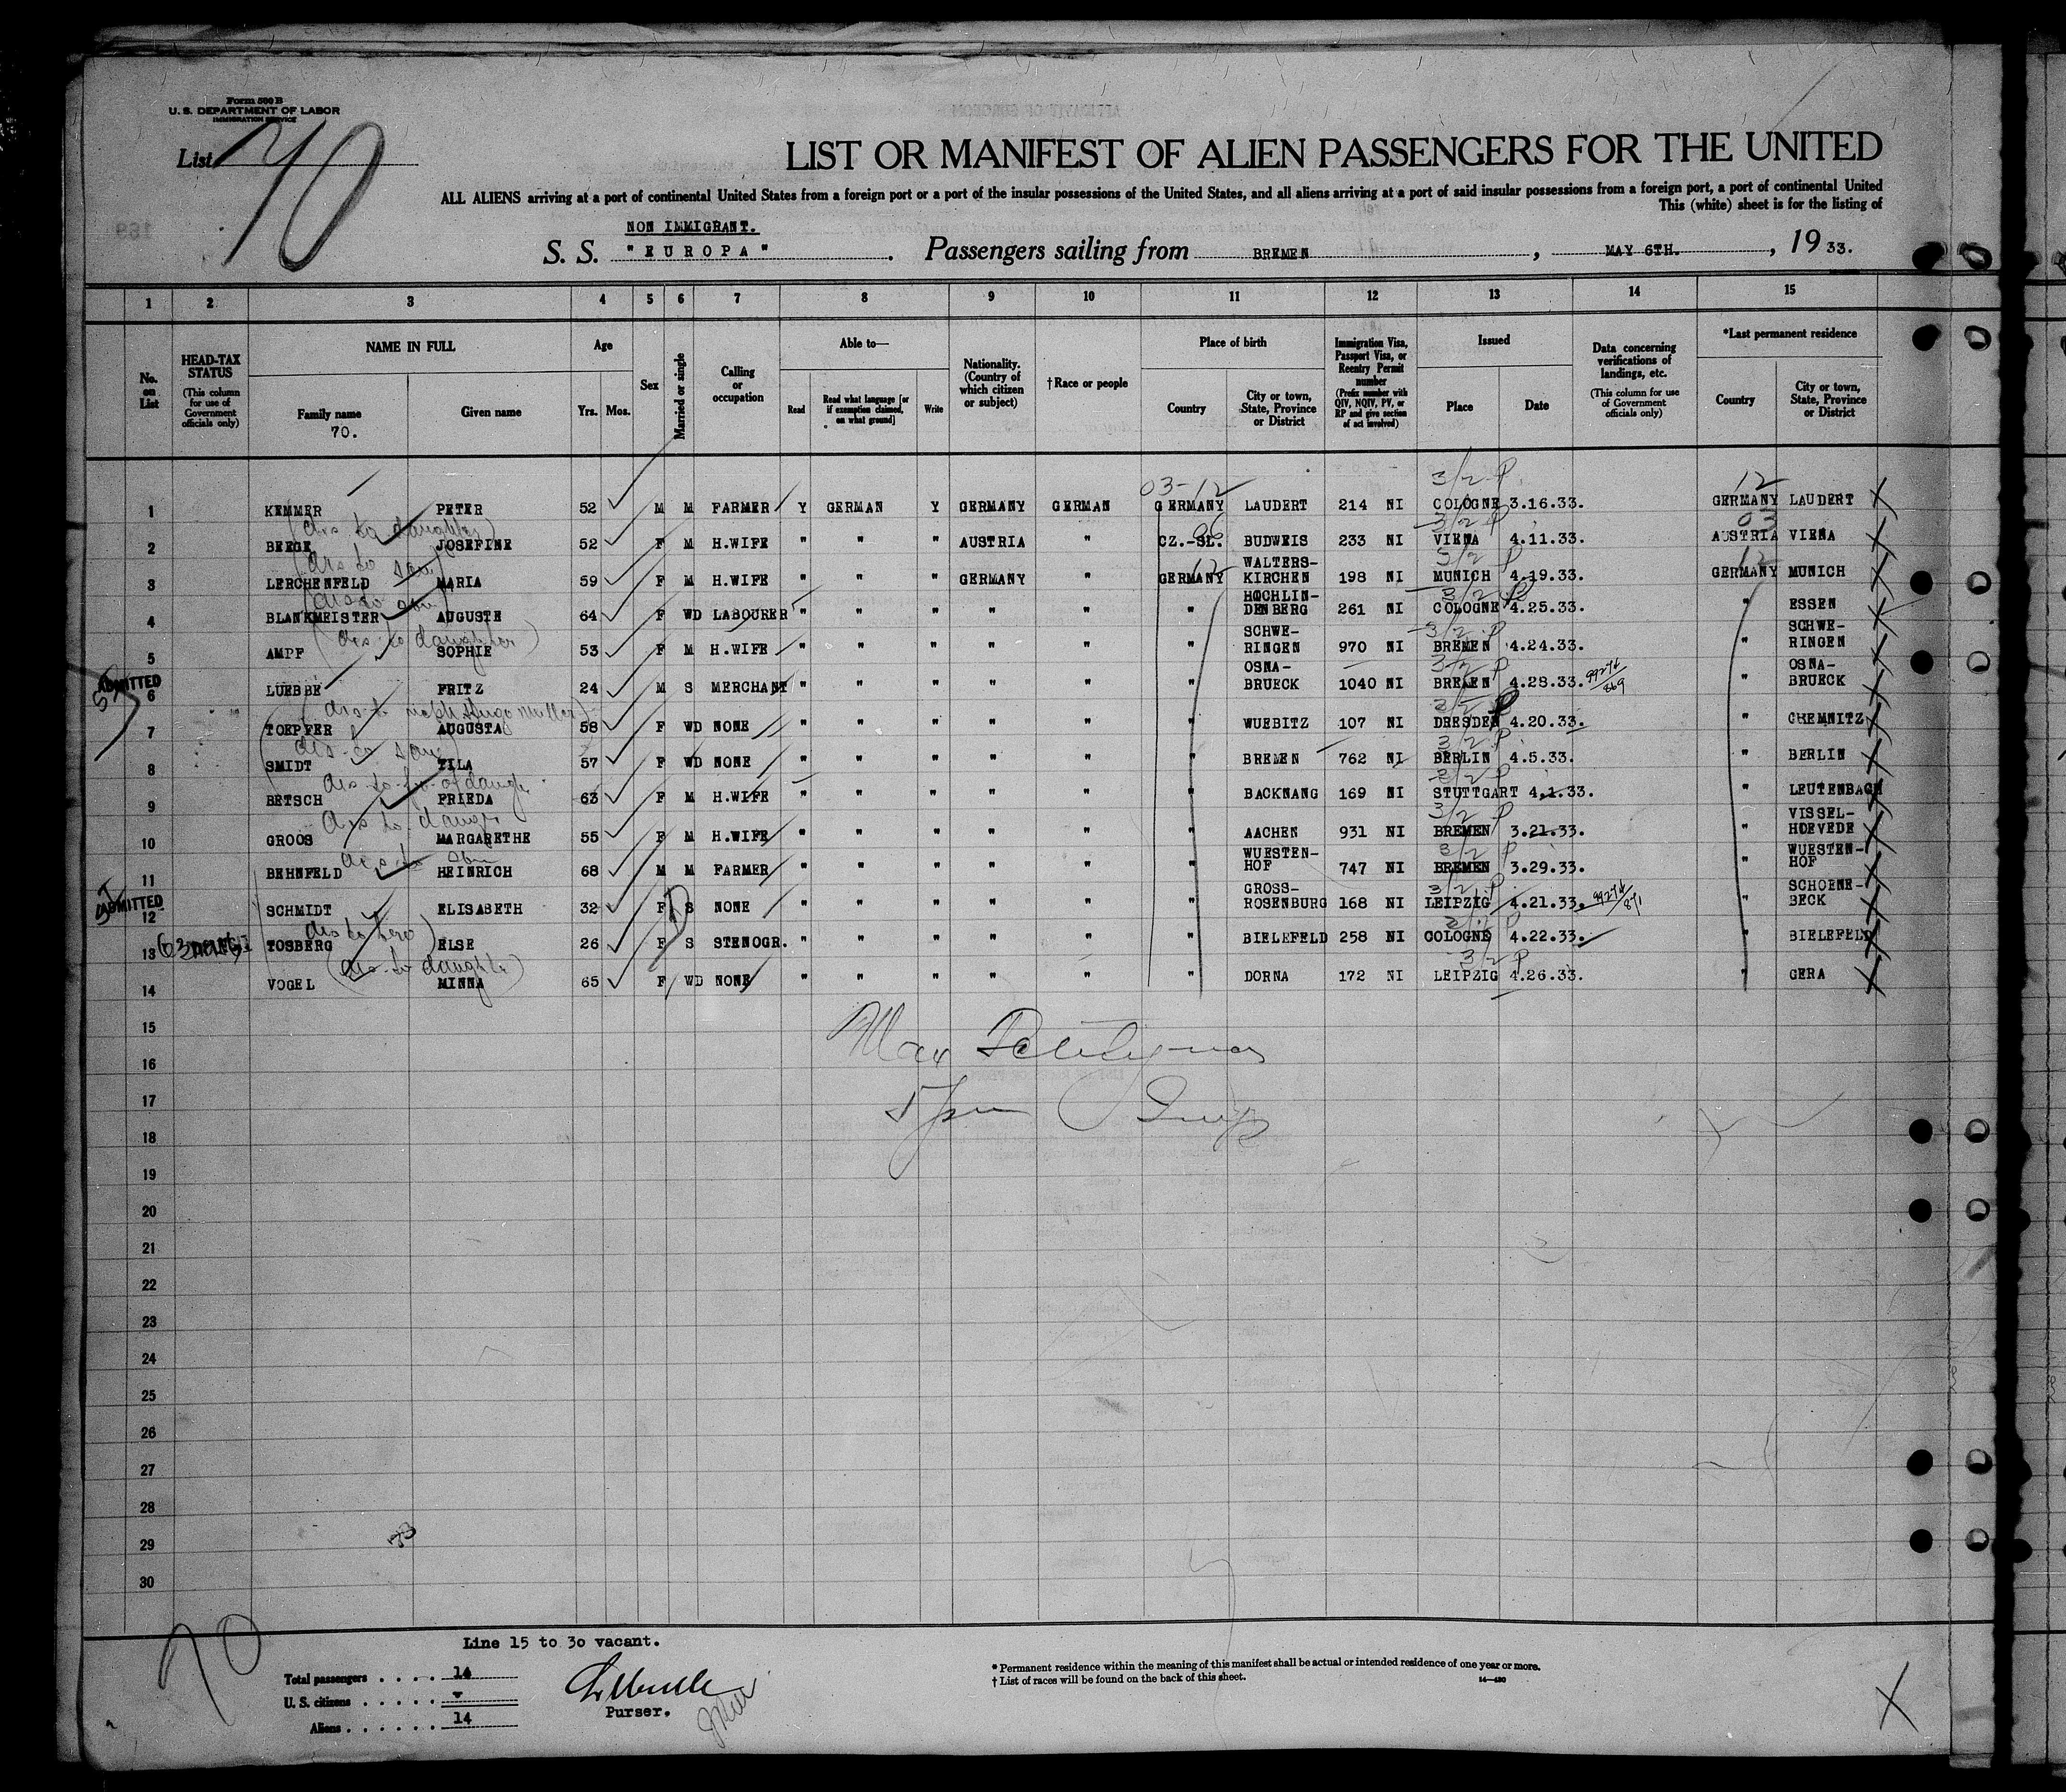 Form 500 B
U. S. DEPARTMENT OF LABOR
IMMIGRATION SERVICE
List 70
LIST OR MANIFEST OF ALIEN PASSENGERS FOR THE UNITED
ALL ALIENS arriving at a port of continental United States from a foreign port or a port of the insular possessions of the United States, and all aliens arriving at a port of said insular possessions from a foreign port, a port of continental United
This (white) sheet is for the listing of
NON IMMIGRANT.
S. S. "EUROPA" . Passengers sailing from BREMEN , MAY 6TH. , 19 33.
1 2 3 4 5 6 7 8 9 10 11 12 13 14 15
No. on List
HEAD-TAX STATUS (This column for use of Government officials only)
NAME IN FULL
Family name
70.
Given name
Age
Yrs. Mos.
Sex
Married or single
Calling or occupation
Able to—
Read
Read what language [or if exemption claimed, on what ground]
Write
Nationality. (Country of which citizen or subject)
†Race or people
Place of birth
Country
City or town, State, Province or District
Immigration Visa, Passport Visa, or Reentry Permit number (Prefix number with QIV, NQIV, PV, or RP and give section of act involved)
Issued
Place
Date
Data concerning verifications of landings, etc. (This column for use of Government officials only)
*Last permanent residence
Country
City or town, State, Province or District
03-12 3/2 P 12
1 KEMMER PETER 52 M M FARMER Y GERMAN Y GERMANY GERMAN GERMANY LAUDERT 214 NI COLOGNE 3.16.33. GERMANY LAUDERT
(dis to daughter) 3/2 P 03
2 BEEGE JOSEFINE 52 F M H.WIFE " " " AUSTRIA " CZ.-SL. BUDWEIS 233 NI VIENA 4.11.33. AUSTRIA VIENA
(dis to son) 12 3/2 P 12
3 LERCHENFELD MARIA 59 F M H.WIFE " " " GERMANY " GERMANY WALTERS-KIRCHEN 198 NI MUNICH 4.19.33. GERMANY MUNICH
(dis to son) 3/2 P
4 BLANKMEISTER AUGUSTE 64 F WD LABOURER " " " " " " HOCHLIN-DENBERG 261 NI COLOGNE 4.25.33. " ESSEN
(dis to daughter) 3/2 P
5 AMPF SOPHIE 53 F M H.WIFE " " " " " " SCHWE-RINGEN 970 NI BREMEN 4.24.33. " SCHWE-RINGEN
3/2 P
ADMITTED 6 LUEBBE FRITZ 24 M S MERCHANT " " " " " " OSNA-BRUECK 1040 NI BREMEN 4.28.33. 99274/869 " OSNA-BRUECK
(dis to neph Hugo Muller) 3/2 P
7 TOEPFER AUGUSTA 58 F WD NONE " " " " " " WUEBITZ 107 NI DRESDEN 4.20.33. " CHEMNITZ
(dis to son) 3/2 P
8 SMIDT TILA 57 F WD NONE " " " " " " BREMEN 762 NI BERLIN 4.5.33. " BERLIN
3/2 P
9 BETSCH FRIEDA 63 F M H.WIFE " " " " " " BACKNANG 169 NI STUTTGART 4.1.33. " LEUTENBACH
3/2 P
10 GROOS MARGARETHE 55 F M H.WIFE " " " " " " AACHEN 931 NI BREMEN 3.21.33. " VISSEL-HOEVEDE
dis to son 3/2 P
11 BEHNFELD HEINRICH 68 M M FARMER " " " " " " WUESTEN-HOF 747 NI BREMEN 3.29.33. " WUESTEN-HOF
3/2 P
ADMITTED 12 SCHMIDT ELISABETH 32 F S NONE " " " " " " GROSS-ROSENBURG 168 NI LEIPZIG 4.21.33. 99274/871 " SCHOENE-BECK
3/2 P
13 TOSBERG ELSE 26 F S STENOGR. " " " " " " BIELEFELD 258 NI COLOGNE 4.22.33. " BIELEFELD
(dis to daughter) 3/2 P
14 VOGEL MINNA 65 F WD NONE " " " " " " DORNA 172 NI LEIPZIG 4.26.33. " GERA
15
16
17
18
19
20
21
22
23
24
25
26
27
28
29
30
70
Line 15 to 30 vacant.
Total passengers . . . . . 14
U. S. citizens . . . . . -
Aliens . . . . . . 14
Purser.
* Permanent residence within the meaning of this manifest shall be actual or intended residence of one year or more.
† List of races will be found on the back of this sheet.
14—430